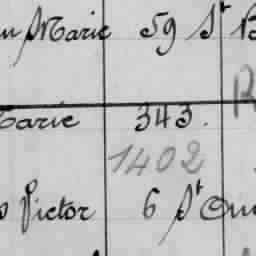 Marie 59 St
arie 343.
1402
Victor 6 St